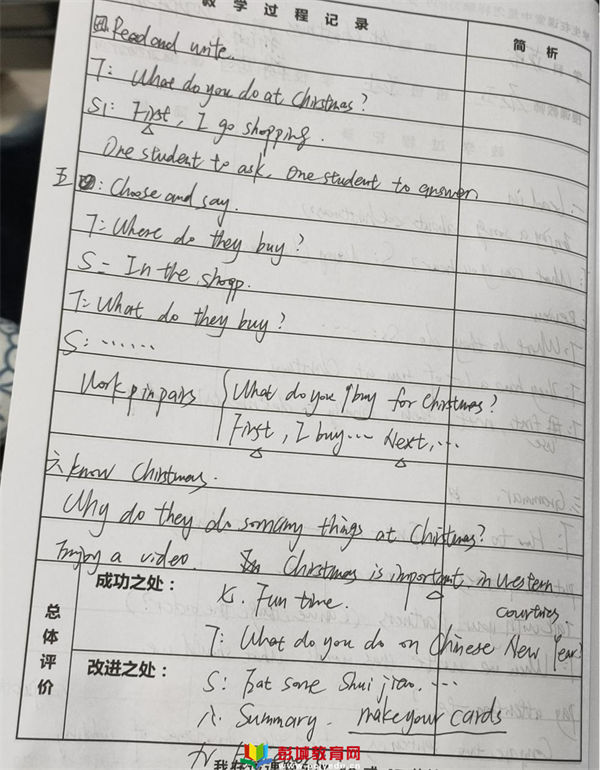 教学过程记录
简析
四. Read and write.
T: What do you do at Christmas?
S1: First, I go shopping.
One student to ask, one student to answer
五: Choose and say.
T: Where do they buy?
S: In the shopp.
T: What do they buy?
S: ......
Work in pairs
What do you buy for Christmas?
First, I buy... Next, ...
六 know Christmas.
Why do they do so many things at Christmas?
Enjoy a video. Christmas is important in western
countries
总体评价
成功之处：
七. Fun time.
T: What do you do on Chinese New Year?
改进之处：
S: Eat some Shui jiao. ...
八. Summary. make your cards
九
彭城教育网